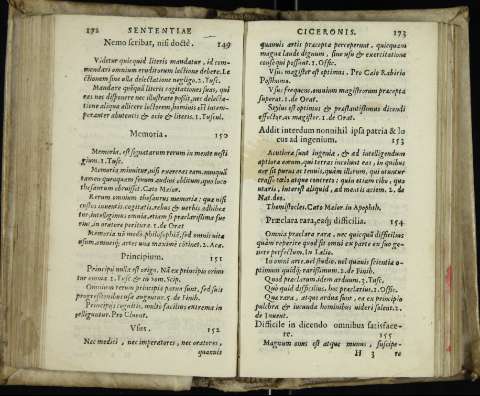 172 SENTENTIAE
Nemo scribat, nisi doctè. 149
Videtur quicquid literis mandatur, id commendari
omnium eruditorum lectione debere. Lectionem
sine ulla delectatione negligo. 2. Tusc.
Mandare quenquã literis cogitationes suas, qui
eas nec disponere nec illustrare possit, nec delectatione
aliqua allicere lectorem, hominis est intemperanter
abutentis & otio & literis. 1. Tuscul.
Memoria. 150
Memoria, est signatarum rerum in mente vestigium.
1. Tusc.
Memoria minuitur, nisi exerceas eam.
thesaurum obruisset. Cato Maior.
Rerum omnium thesaurus memoria: quæ nisi
custos inventis, cogitatisq; rebus & verbis adhibeatur,
intelligimus omnia, etiam si præclarissima fuerint,
in oratore peritura. 1. de Orat
Principium. 151
Principii nulla est origo. Nã ex principio oriuntur
omnia. 1. Tusc. & in som. Scip.
Omnium rerum principia parva sunt, sed suis
progressionibus usa augentur. 5. de Finib.
Principiis cognitis, multo facilius extrema intelliguntur.
Pro Cluent.
Vsus. 152
Nec medici, nec imperatores, nec oratores,
quamuis
CICERONIS. 173
quamvis artis præcepta perceperint, quicquam
magna laude dignum, sine usu & exercitatione
consequi possunt. 1. Offic.
Vsus magister est optimus. Pro Caio Rabirio
Posthumo.
Vsus frequens, omnium magistrorum præcepta
superat. 1. de Orat.
Stylus est optimus & præstantissimus dicendi
effector, ac magister. 1. de Orat.
Addit interdum nonnihil ipsa patria & locus
ad ingenium. 153
Acutiora sunt ingenia, & ad intelligendum
aptiora eorum, qui terras incolunt eas, in quibus
aer sit purus ac tenuis, quàm illorum, qui utuntur
crasso cœlo atque concreto: quin etiam cibo, quo
utaris, interest aliquid, ad mentis aciem. 2. de
Nat. deo.
Themistocles. Cato Maior in Apophth.
Præclara rara, eaq; difficilia. 154
Omnia præclara rara, nec quicquã difficilius
quàm reperire quod sit omni ex parte in suo genere
perfectum. In Lælio.
In omni arte, vel studio, vel quavis scientia optimum
quidq; rarissimum. 2. de Finib.
Quod præclarum, idem arduum. 3. Tusc.
Quò quid difficilius, hoc præclarius. 1. Offic.
Quæ rara, atque ardua sunt, ea ex principio
pulchra & iucunda hominibus videri solent. 2.
de Invent.
Difficile in dicendo omnibus satisfacere.
155
Magnum onus est atque munus, suscipe-
H 3 re